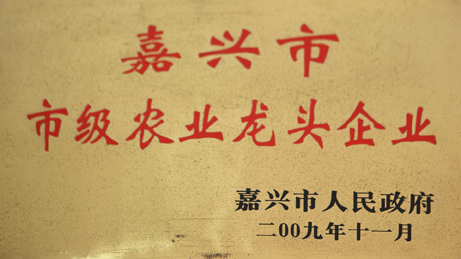 嘉兴市
市级农业龙头企业
嘉兴市人民政府
二00九年十一月